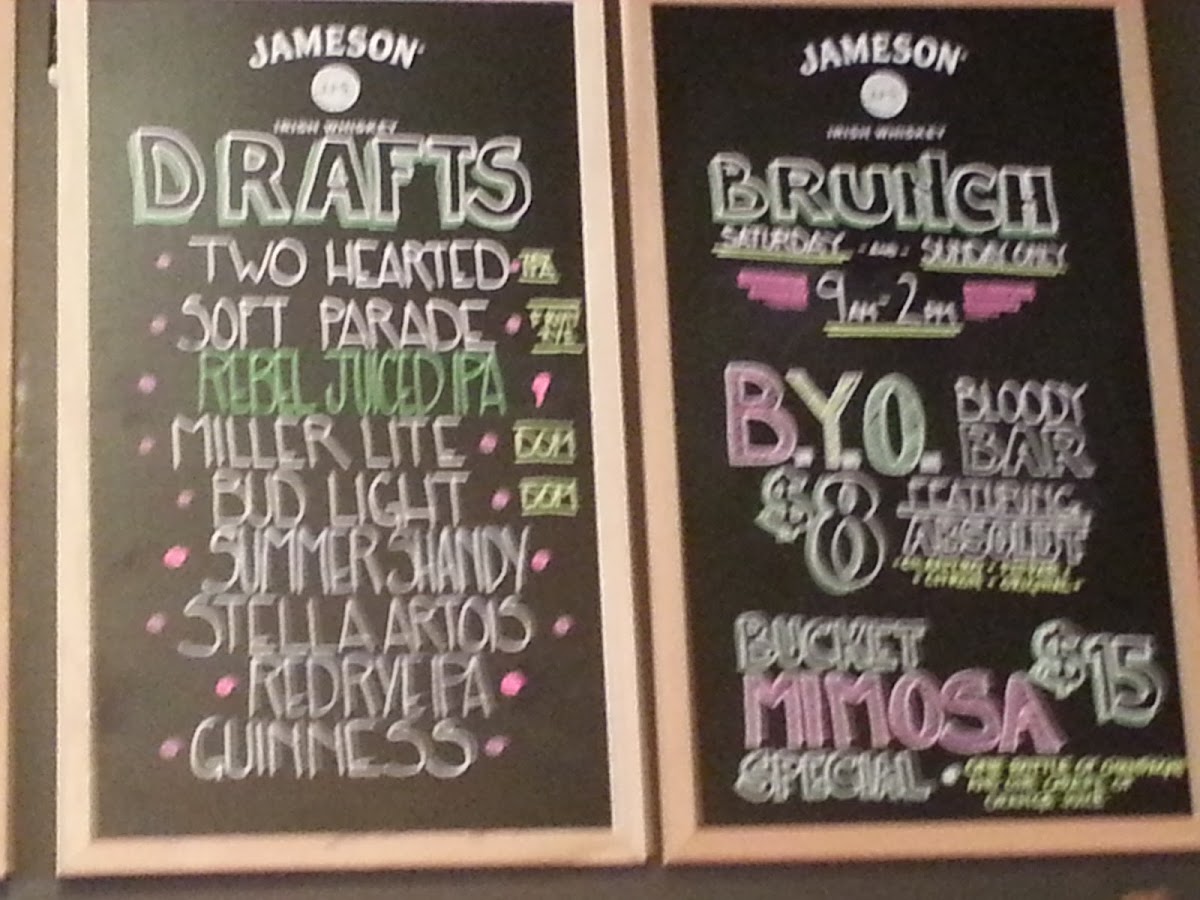 JAMESON
IRISH WHISKEY
DRAFTS
TWO HEARTED IPA
SOFT PARADE FRUIT
REBEL JUICED IPA
MILLER LITE DOM
BUD LIGHT DOM
SUMMER SHANDY
STELLA ARTOIS
RED RYE IPA
GUINNESS
JAMESON
IRISH WHISKEY
BRUNCH
SATURDAY AND SUNDAY ONLY
9AM-2PM
B.Y.O. BLOODY
BAR
$8 FEATURING
ABSOLUT
BUCKET
MIMOSA $15
SPECIAL • ONE BOTTLE OF CHAMPAGNE
AND ONE CARAFE OF
ORANGE JUICE